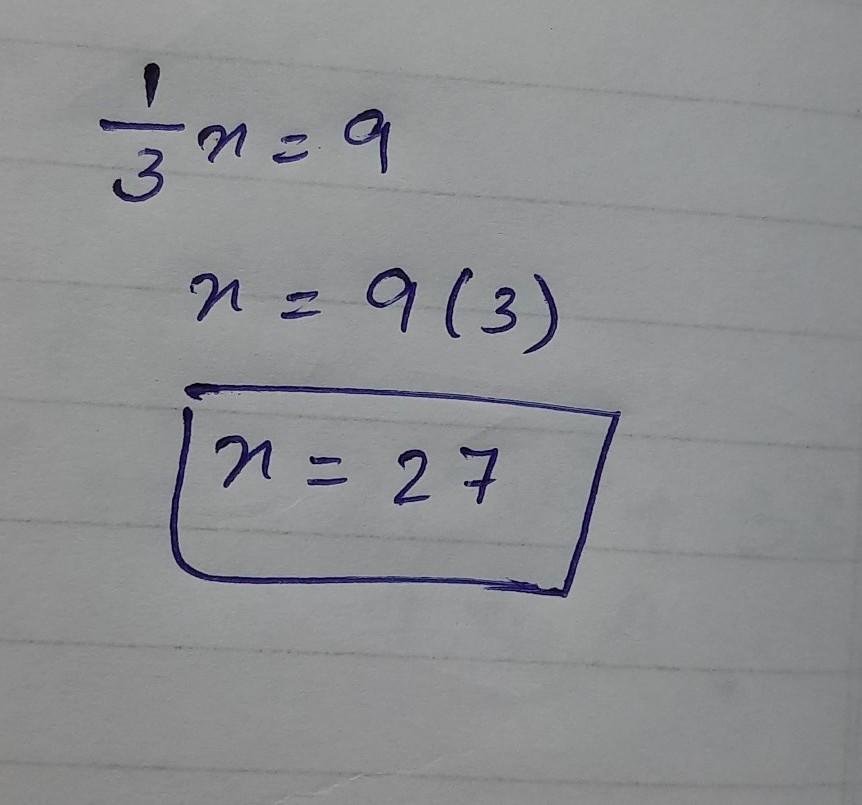 1/3 x = 9
x = 9(3)
x = 27